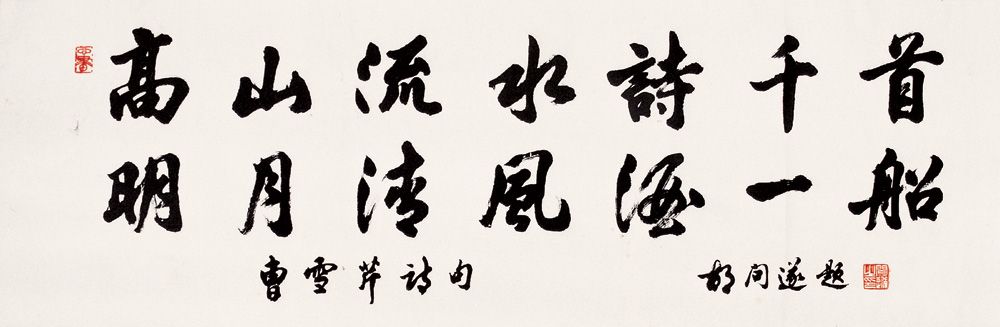 高山流水詩千首
明月清風酒一船
曹雪芹詩句 胡問遂題